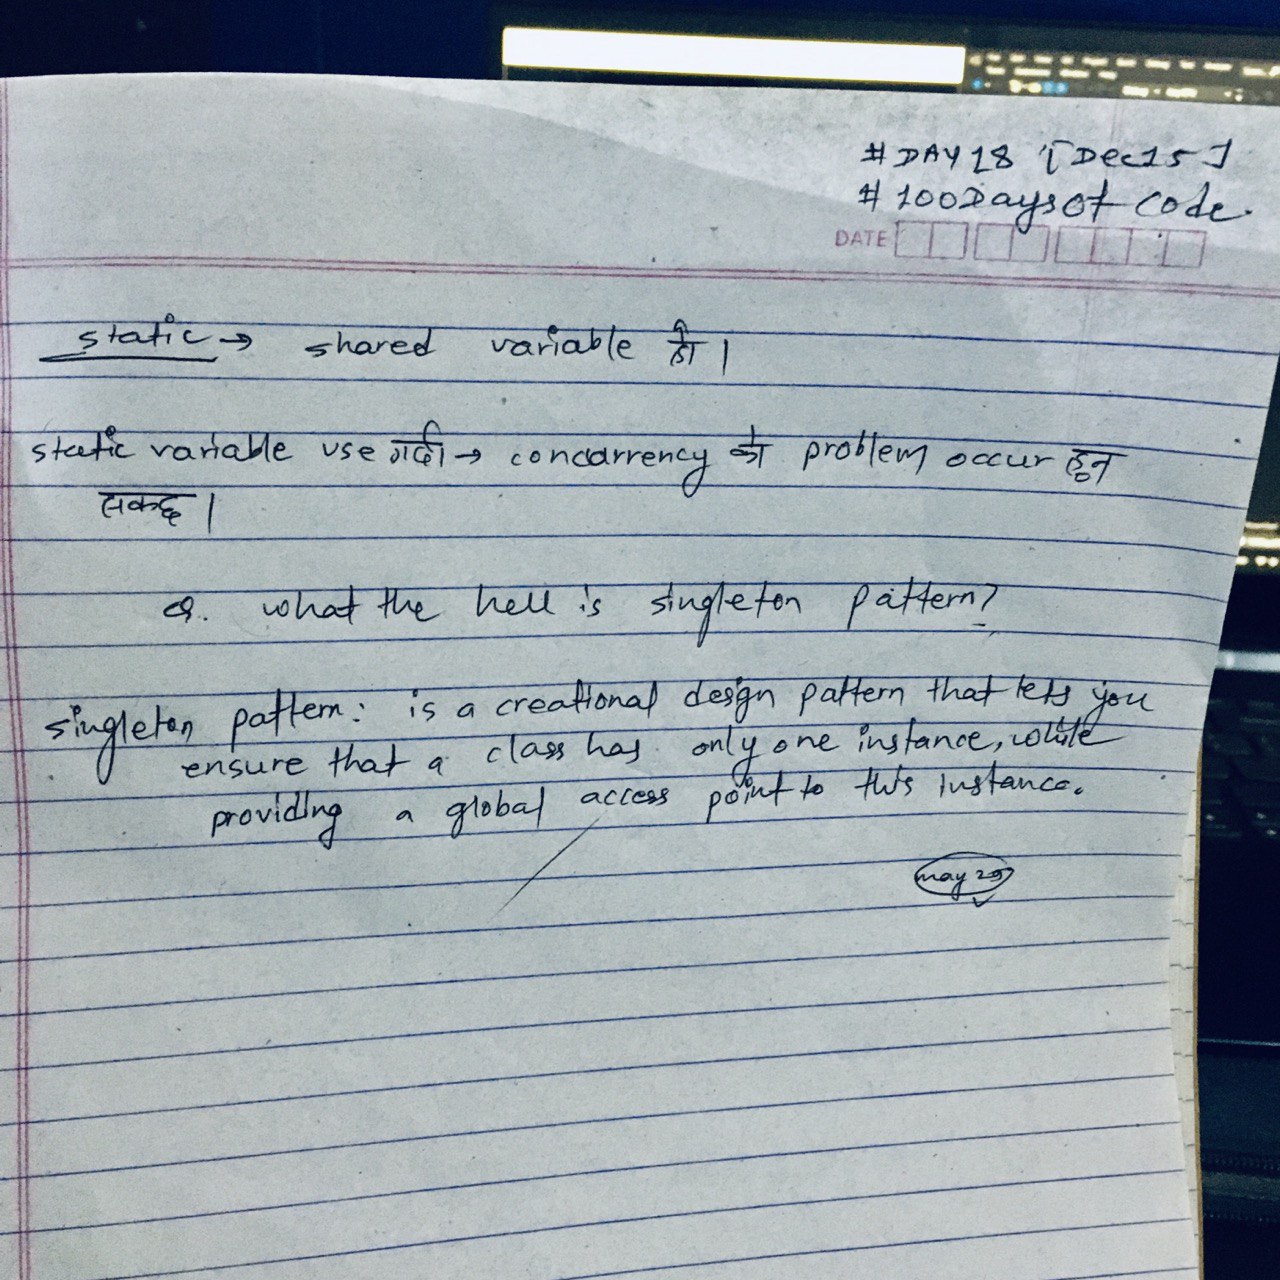 #DAY18 [Dec15]
#100DaysOf Code.
DATE
static → shared variable हो।
static variable use गर्दा → concarrency को problem occur हुन
सक्छ।
Q. what the hell is singleton pattern?
singleton pattern: is a creational design pattern that lets you
ensure that a class has only one instance, while
providing a global access point to this instance.
may 29